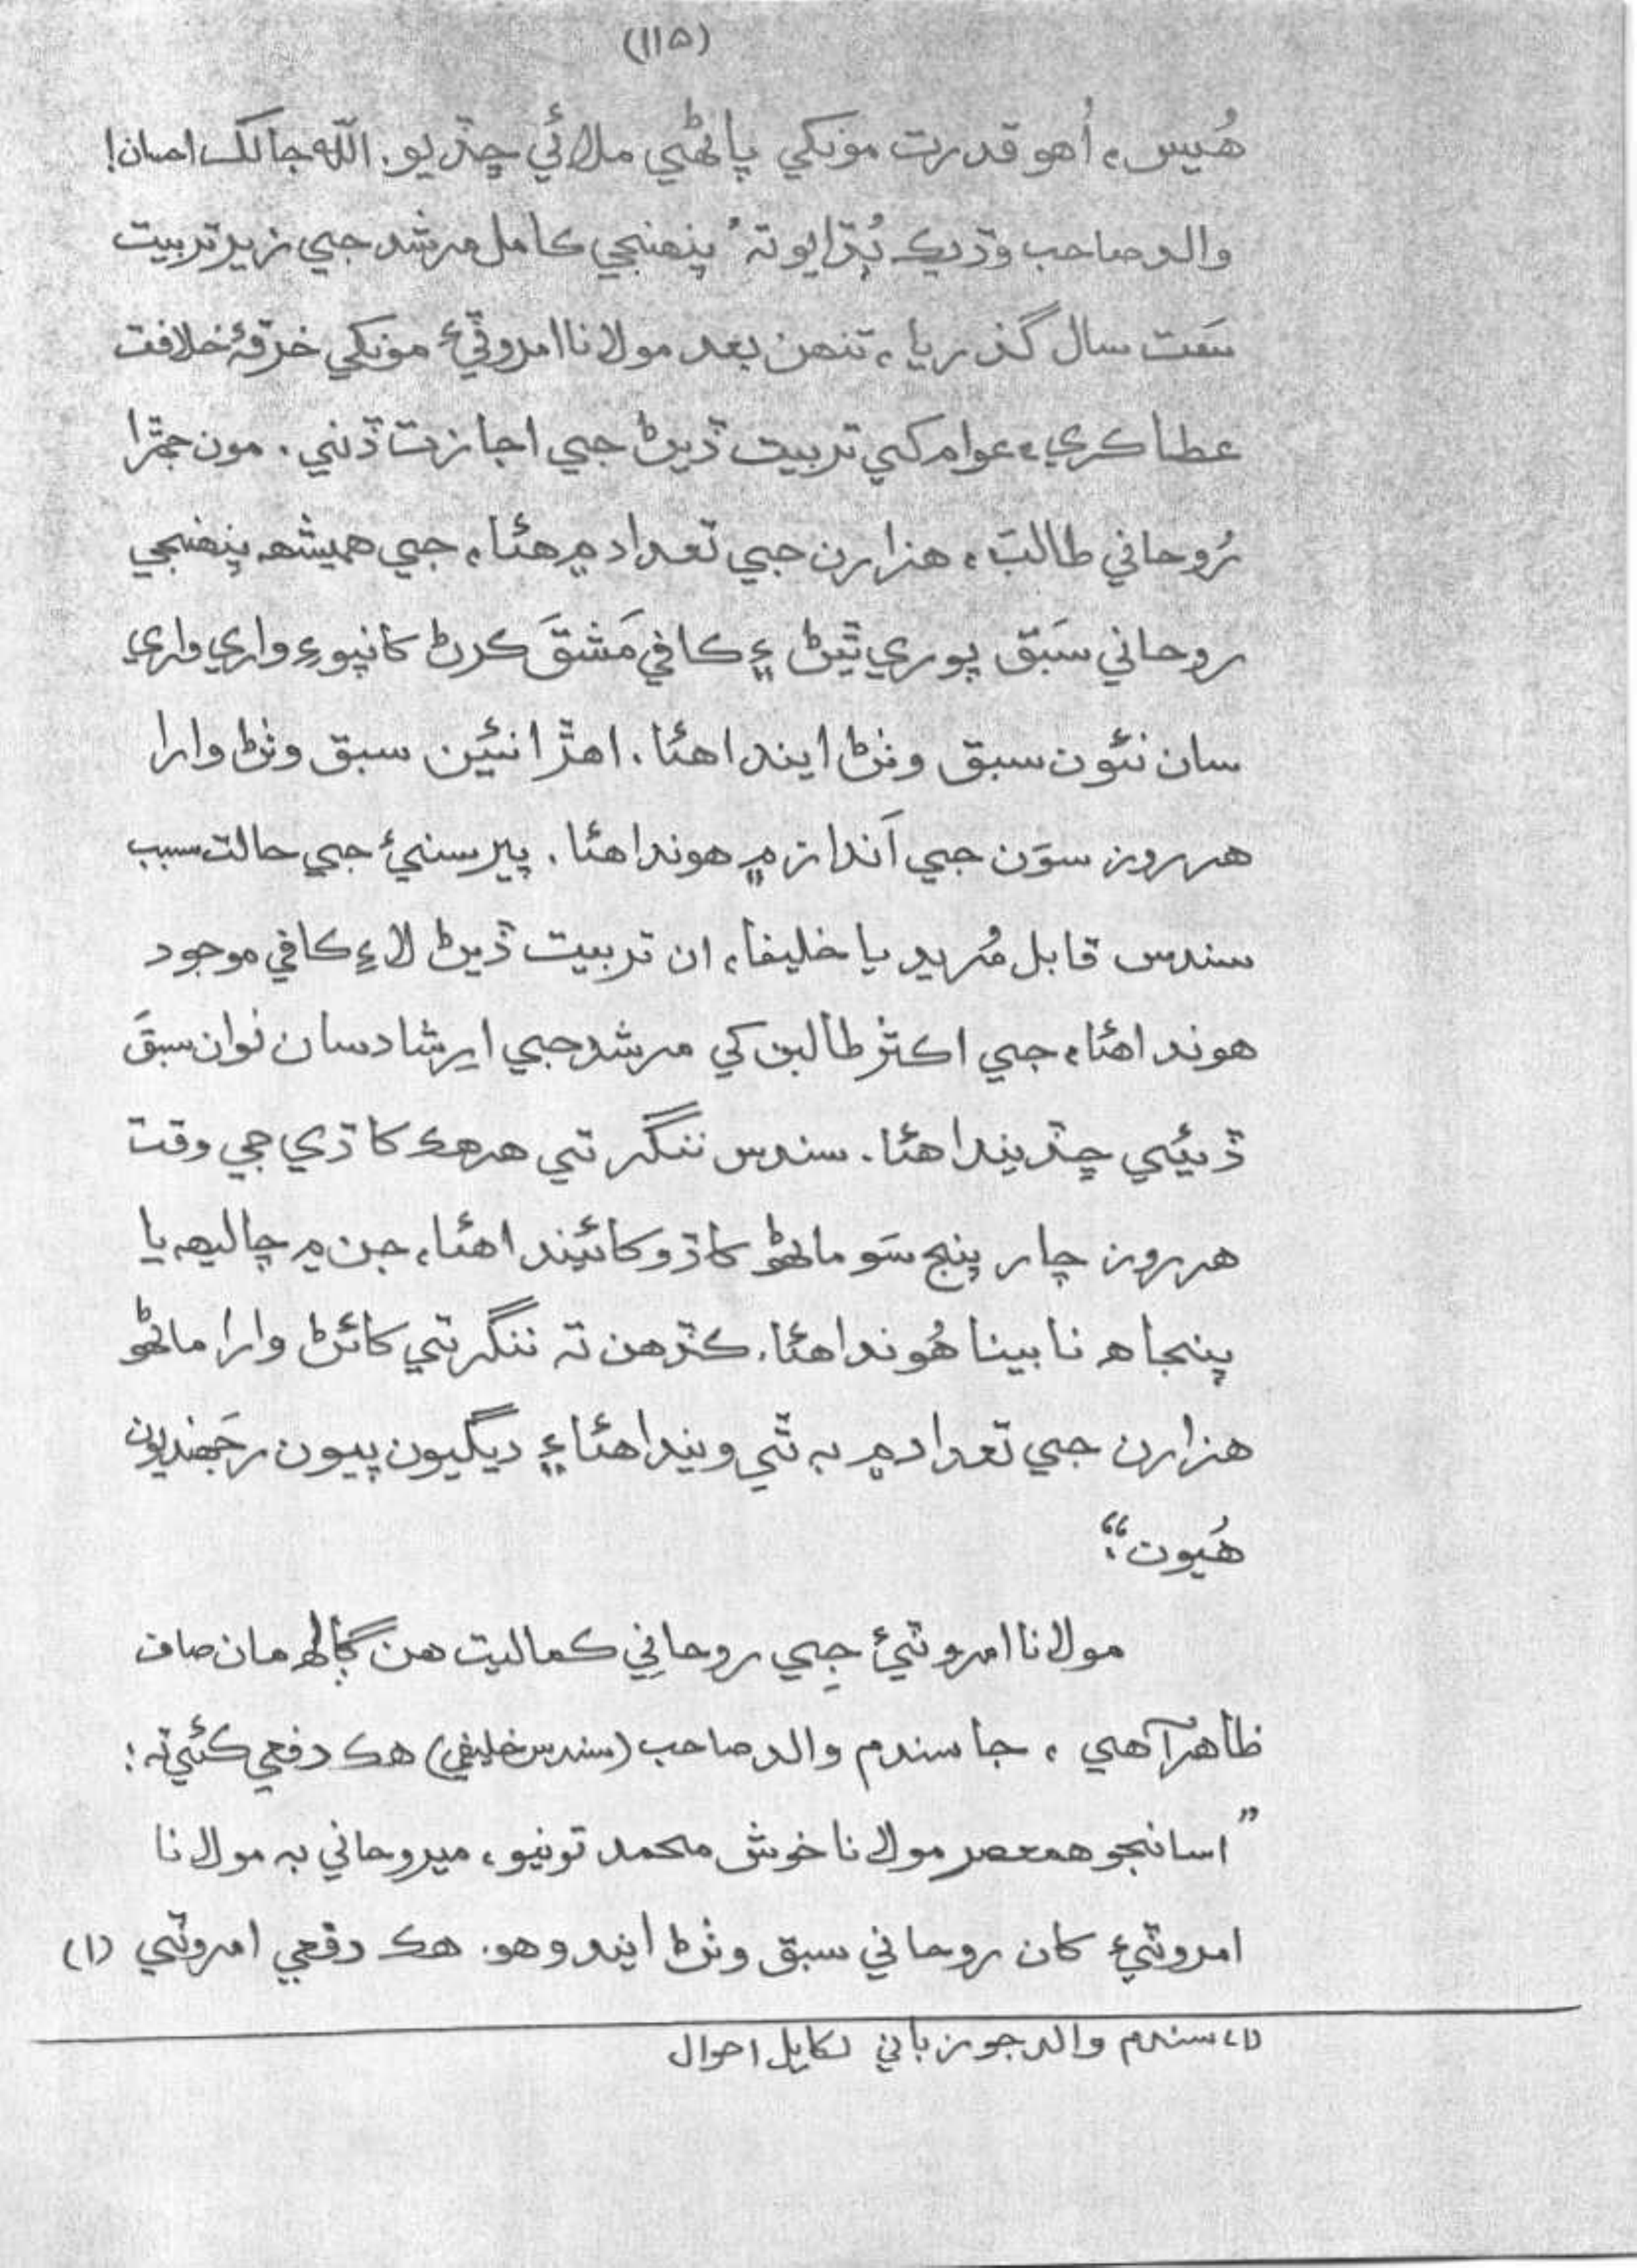 (١١٥)
هُيس، اُهو قدرت مونکي پاڻهي ملائي ڇڏيو. اللّٰه جا لک احسان!
والد صاحب وڌيڪ ٻُڌايو تہ ُ پنھنجي ڪامل مرشد جي زير تربيت
سَت سال گذريا، تنھن بعد مولانا امروٽيءَ مونکي خرقۂ خلافت
عطا ڪري، عوام کي تربيت ڏيڻ جي اجازت ڏني. مون جھڙا
رُوحاني طالبَ، ھزارن جي تعداد ۾ ھئا، جي ھميشہ پنھنجي
روحاني سَبق پوري ٿيڻ ۽ ڪافي مَشقَ ڪرڻ کانپوءِ واري واري
سان نئون سبق وٺڻ ايندا ھئا. اھڙا نئين سبق وٺڻ وارا
ھر روز سوَن جي اَنداز ۾ ھوندا ھئا. پيرسنيءَ جي حالت سبب
سندس قابل مُريد يا خليفا، ان تربيت ڏيڻ لاءِ ڪافي موجود
ھوندا ھئا، جي اڪثر طالبن کي مرشد جي ارشاد سان نوان سبقَ
ڏيئي ڇڏيندا ھئا. سندس لنگر تي ھر ھڪ کاڌي جي وقت
ھر روز چار پنج سَو ماڻھو کاڌو کائيندا ھئا، جن ۾ چاليھہ يا
پنجاھ نابينا ھُوندا ھئا. ڪڏھن تہ لنگر تي کائڻ وارا ماڻھو
ھزارن جي تعداد ۾ بہ ٿي ويندا ھئا ۽ ديگيون پييون رجھنديون
ھُيون“.
مولانا امروٽيءَ جي روحاني ڪماليت ھن ڳالھ مان صاف
ظاھر آھي، جا سندم والد صاحب (سندس خليفي) ھڪ دفعي ڪئي تہ:
”اسانجو ھمعصر مولانا خوش محمد تونيو، ميروخاني بہ مولانا
امروٽيءَ کان روحاني سبق وٺڻ ايندو ھو. ھڪ دفعي امروٽي (١)
(١) سندم والد جو زباني لکايل احوال